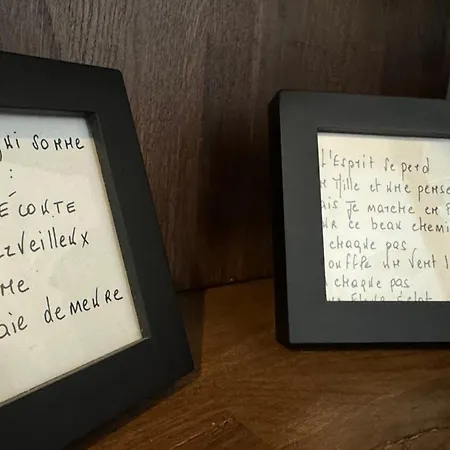 qui somme
:
é conte
erveilleux
me
aie demeure
L'Esprit se perd
en Mille et une pensé
ais Je marche en P
ur ce beau chemi
chaque pas
ouffle un vent
chaque pas